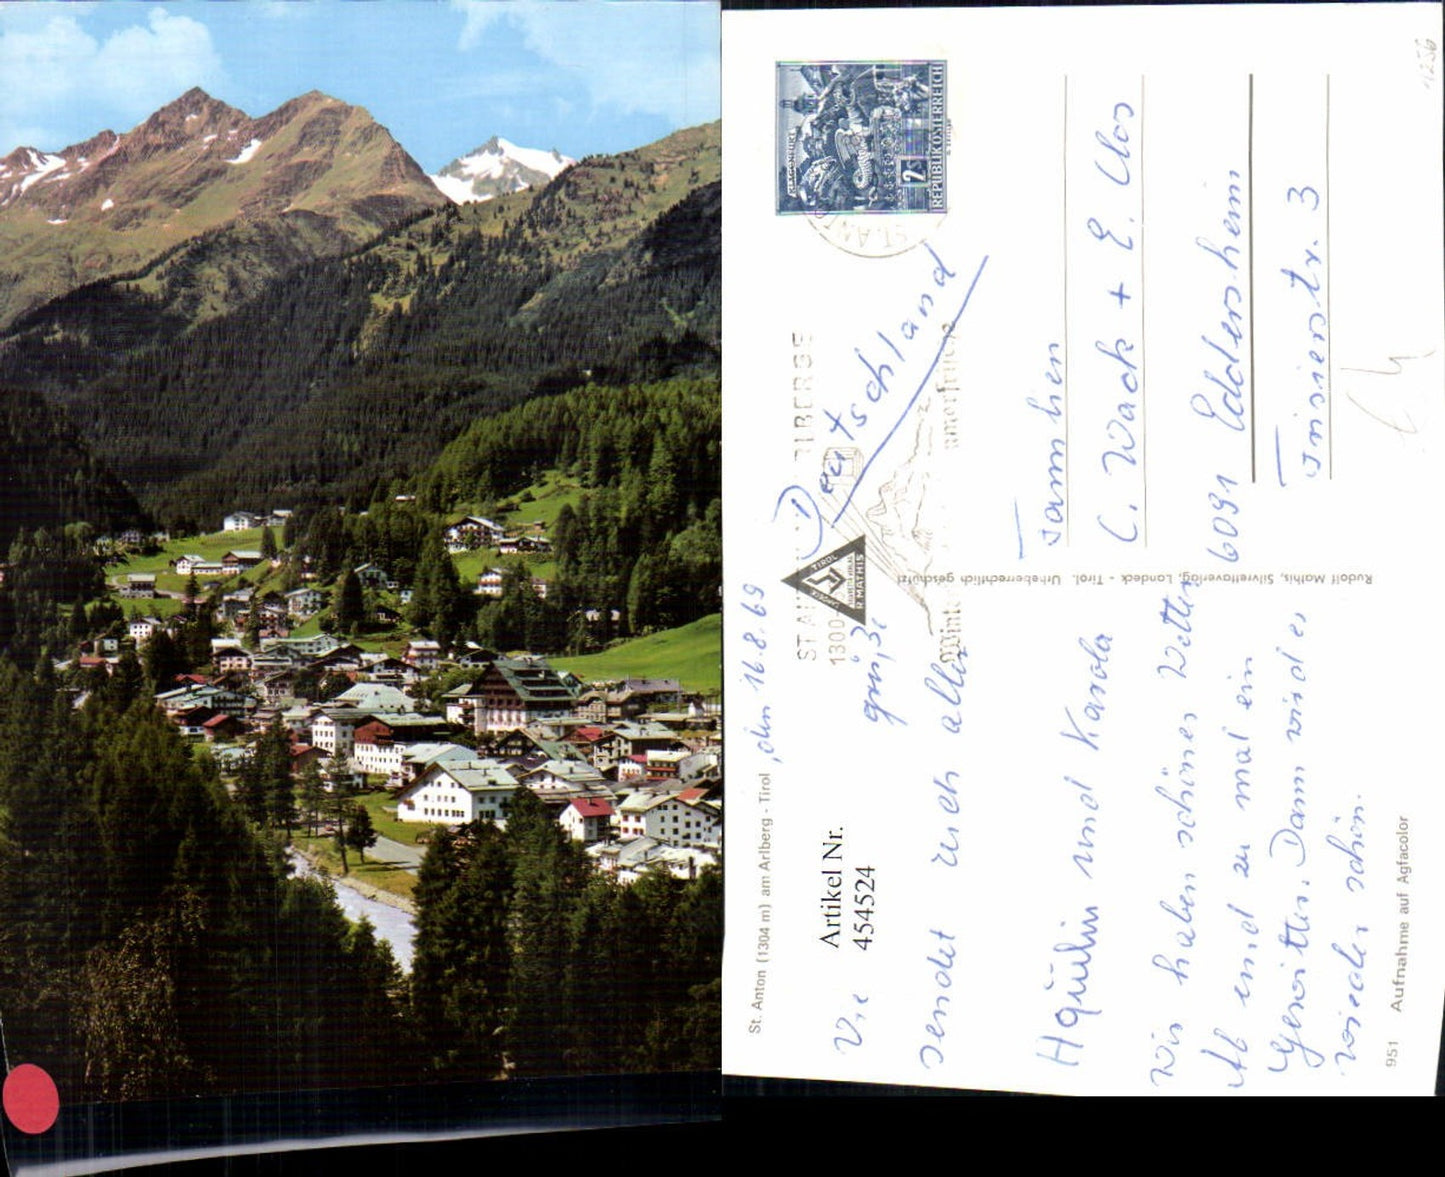 St. Anton (1304 m) am Arlberg - Tirol
, den 16.8.69
Artikel Nr.
454524
Viele grüße
sendet euch allen
und Karola
Wir haben schönes Wetter
Ab und zu mal ein
Gewitter. Dann wird es
wieder schön.
951 Aufnahme auf Agfacolor
Rudolf Mathis, Silvrettaverlag, Landeck - Tirol. Urheberrechtlich geschützt
TIROL
LANDECK
R. MATHIS
REPUBLIK ÖSTERREICH
KLAGENFURT
2 S
ST. ANT
ST. ANTON ARLBERGE
1300
Winter
Deutschland
Familien
C. Wack + E. Clos
6091 Eddersheim
Taunusstr. 3
11256